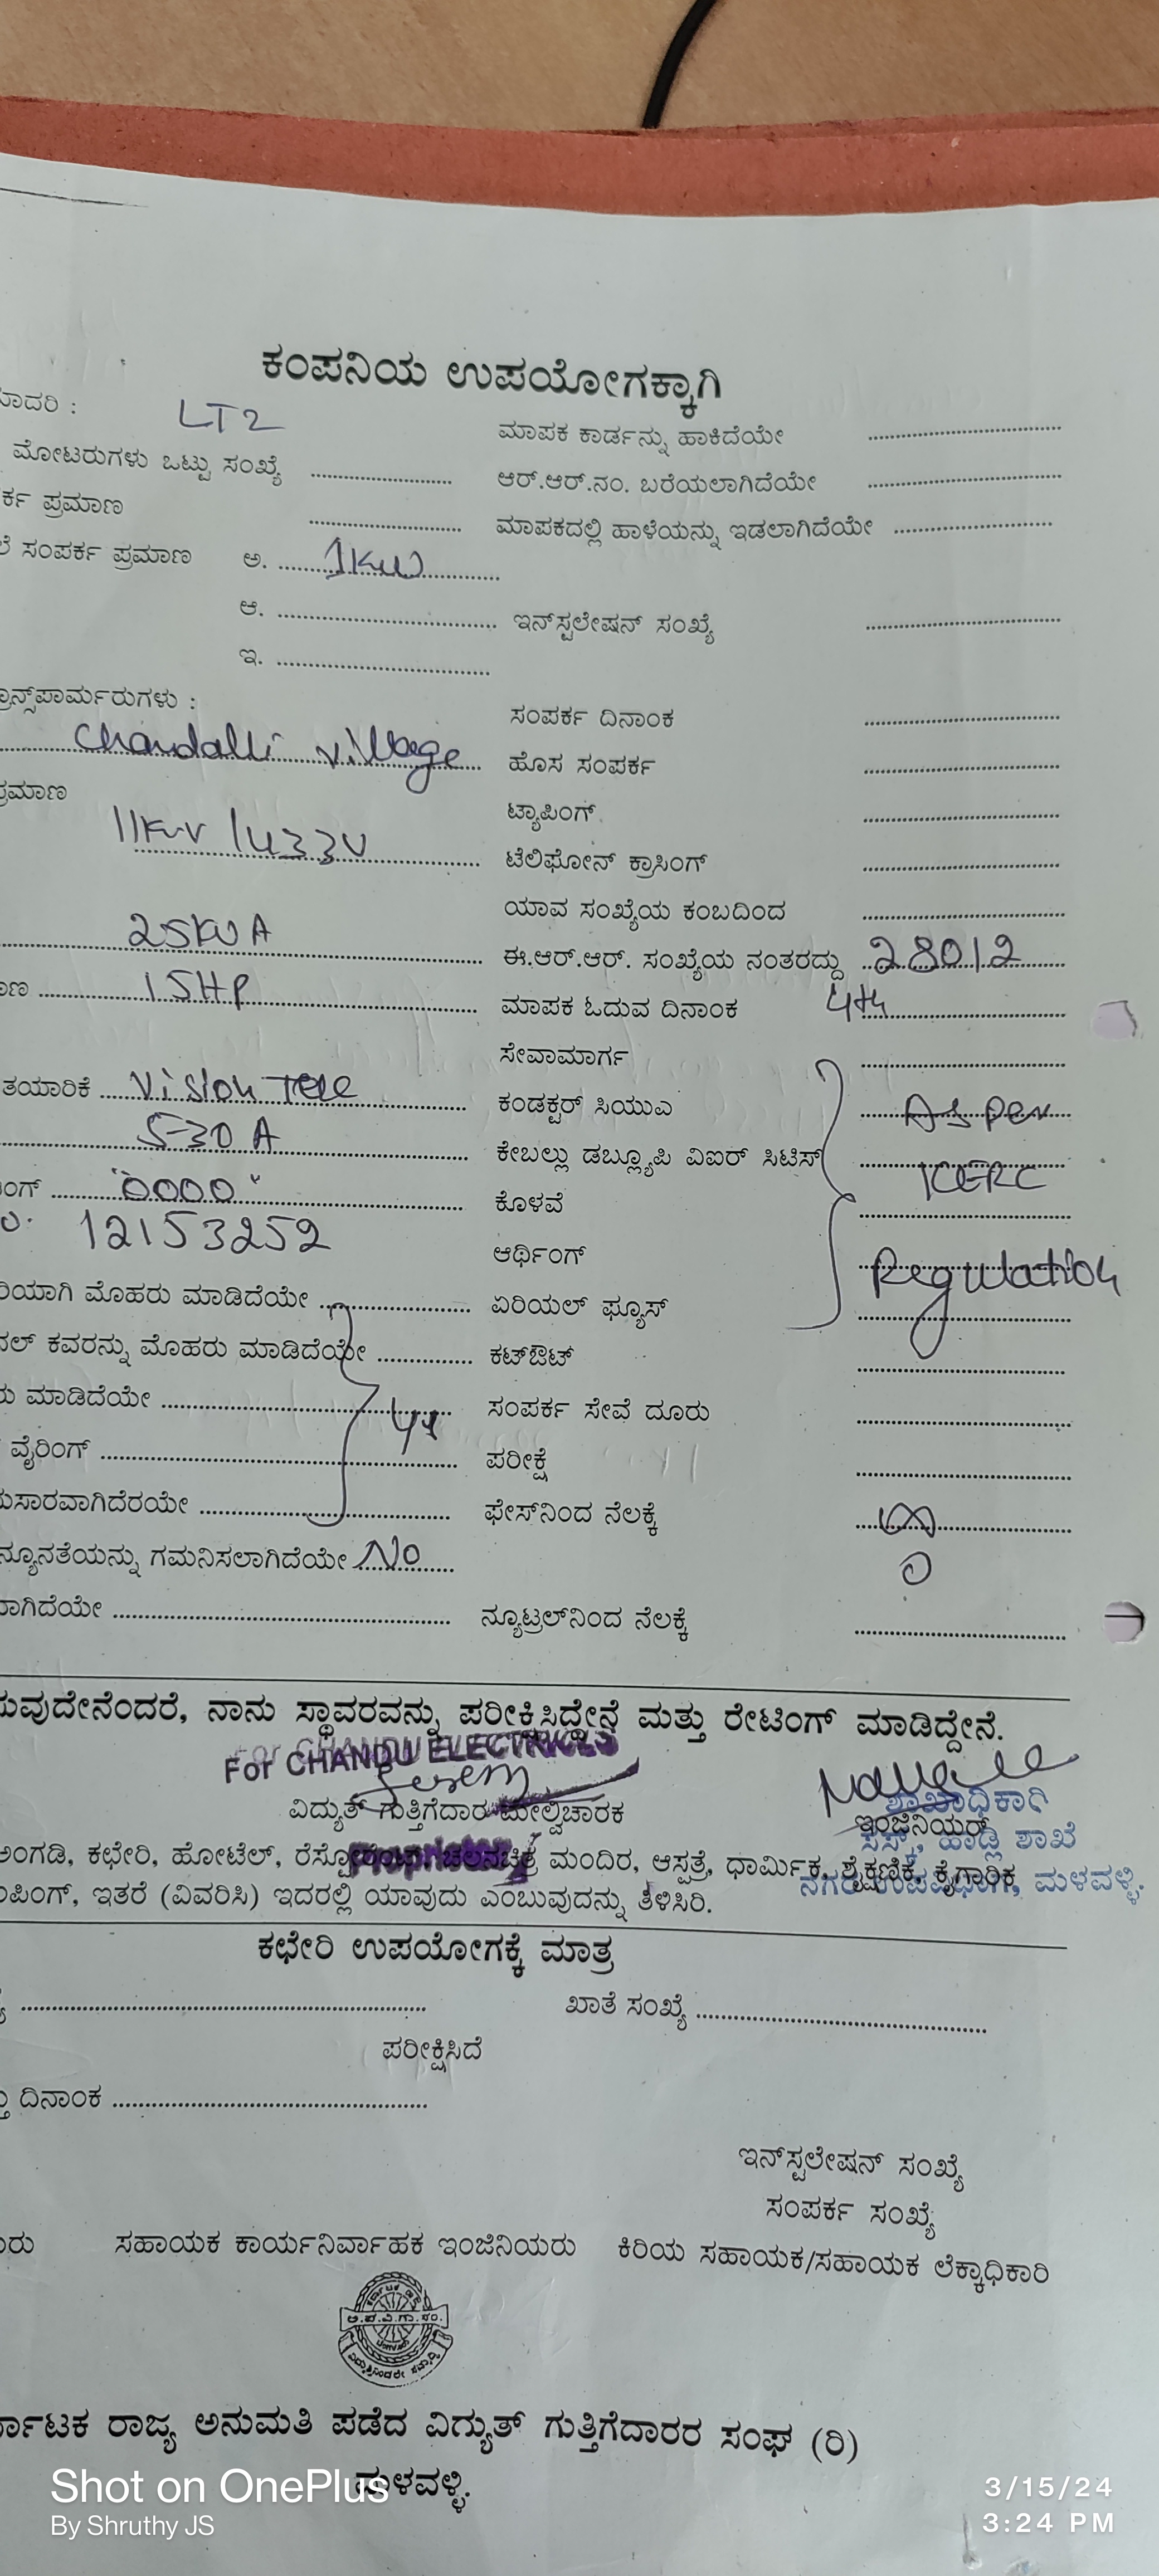 ಕಂಪನಿಯ ಉಪಯೋಗಕ್ಕಾಗಿ
LT2
ಮಾಪಕ ಕಾರ್ಡನ್ನು ಹಾಕಿದೆಯೇ
ಮೋಟರುಗಳು ಒಟ್ಟು ಸಂಖ್ಯೆ
ಆರ್.ಆರ್.ನಂ. ಬರೆಯಲಾಗಿದೆಯೇ
ಪ್ರಮಾಣ
ಮಾಪಕದಲ್ಲಿ ಹಾಳೆಯನ್ನು ಇಡಲಾಗಿದೆಯೇ
ಸಂಪರ್ಕ ಪ್ರಮಾಣ ಅ. 1KW
ಆ. ಇನ್‌ಸ್ಟಲೇಷನ್ ಸಂಖ್ಯೆ
ಇ.
ಸಂಪರ್ಕ ದಿನಾಂಕ
Chandalli village ಹೊಸ ಸಂಪರ್ಕ
ಟ್ಯಾಪಿಂಗ್
11KV /433V ಟೆಲಿಫೋನ್ ಕ್ರಾಸಿಂಗ್
ಯಾವ ಸಂಖ್ಯೆಯ ಕಂಬದಿಂದ
25KVA ಈ.ಆರ್.ಆರ್. ಸಂಖ್ಯೆಯ ನಂತರದ್ದು 28012
15HP ಮಾಪಕ ಓದುವ ದಿನಾಂಕ 4th
ಸೇವಾಮಾರ್ಗ
ತಯಾರಿಕೆ Vision Tele ಕಂಡಕ್ಟರ್ ಸಿಯುಎ As per
5-30 A ಕೇಬಲ್ಲು ಡಬ್ಲ್ಯೂಪಿ ವಿಐರ್ ಸಿಟಿಸ್ KERC
"0000" ಕೊಳವೆ
12153252 ಆರ್ಥಿಂಗ್ Regulation
ಮೊಹರು ಮಾಡಿದೆಯೇ ಏರಿಯಲ್ ಫ್ಯೂಸ್
ಕವರನ್ನು ಮೊಹರು ಮಾಡಿದೆಯೇ ಕಟ್‌ಔಟ್
ಮಾಡಿದೆಯೇ ಸಂಪರ್ಕ ಸೇವೆ ದೂರು
ವೈರಿಂಗ್ ಪರೀಕ್ಷೆ
ಫೇಸ್‌ನಿಂದ ನೆಲಕ್ಕೆ ∞
ನ್ಯೂನತೆಯನ್ನು ಗಮನಿಸಲಾಗಿದೆಯೇ No 0
ನ್ಯೂಟ್ರಲ್‌ನಿಂದ ನೆಲಕ್ಕೆ
ನಾನು ಸ್ಥಾವರವನ್ನು ಪರೀಕ್ಷಿಸಿದ್ದೇನೆ ಮತ್ತು ರೇಟಿಂಗ್ ಮಾಡಿದ್ದೇನೆ.
For CHANDU ELECTRICLS
ವಿದ್ಯುತ್ ಗುತ್ತಿಗೆದಾರ ಮೇಲ್ವಿಚಾರಕ
ಶಾಖಾಧಿಕಾರಿ
ಇಂಜಿನಿಯರ್
ಹಾಡ್ಲಿ ಶಾಖೆ
Proprietor
ಅಂಗಡಿ, ಕಛೇರಿ, ಹೋಟೆಲ್, ಮಂದಿರ, ಆಸ್ಪತ್ರೆ, ಧಾರ್ಮಿಕ, ಶೈಕ್ಷಣಿಕ, ಕೈಗಾರಿಕ
ನಗರ ಉಪವಿಭಾಗ, ಮಳವಳ್ಳಿ.
ಇತರೆ (ವಿವರಿಸಿ) ಇದರಲ್ಲಿ ಯಾವುದು ಎಂಬುವುದನ್ನು ತಿಳಿಸಿರಿ.
ಕಛೇರಿ ಉಪಯೋಗಕ್ಕೆ ಮಾತ್ರ
ಖಾತೆ ಸಂಖ್ಯೆ
ಪರೀಕ್ಷಿಸಿದೆ
ದಿನಾಂಕ
ಇನ್‌ಸ್ಟಲೇಷನ್ ಸಂಖ್ಯೆ
ಸಂಪರ್ಕ ಸಂಖ್ಯೆ
ಸಹಾಯಕ ಕಾರ್ಯನಿರ್ವಾಹಕ ಇಂಜಿನಿಯರು ಕಿರಿಯ ಸಹಾಯಕ/ಸಹಾಯಕ ಲೆಕ್ಕಾಧಿಕಾರಿ
ರಾಜ್ಯ ಅನುಮತಿ ಪಡೆದ ವಿಗ್ಯುತ್ ಗುತ್ತಿಗೆದಾರರ ಸಂಘ (ರಿ)
ಮಳವಳ್ಳಿ.
Shot on OnePlus
By Shruthy JS
3/15/24
3:24 PM